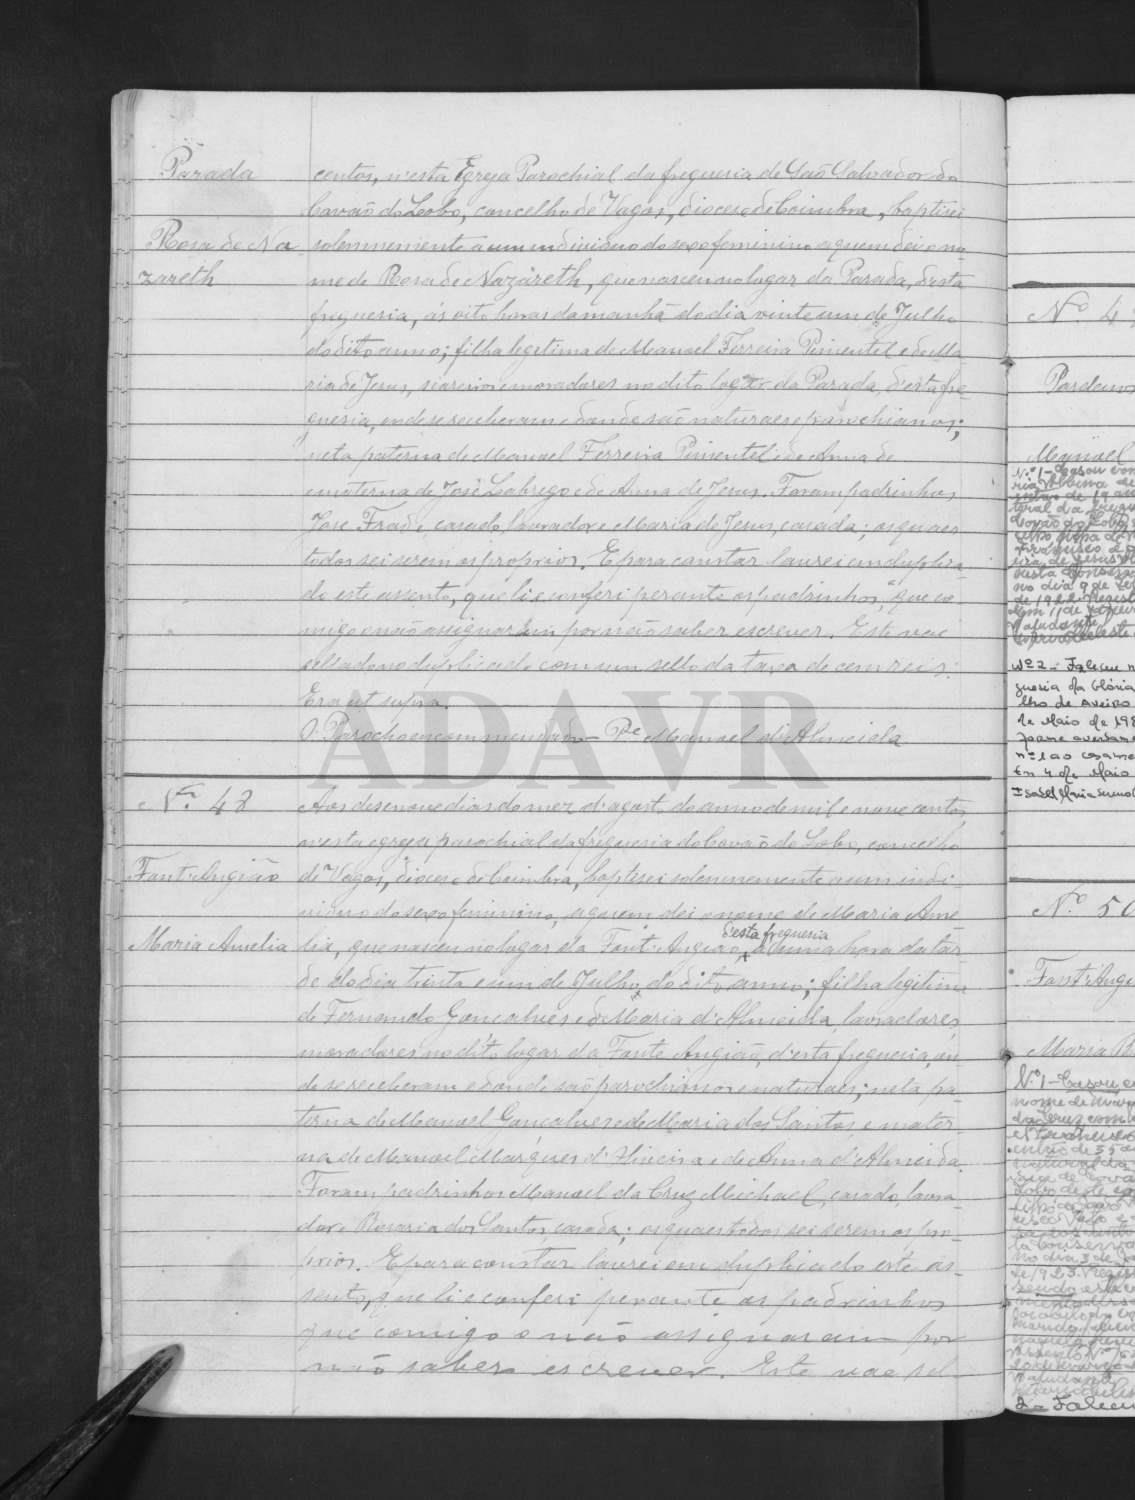 Parada
Rosa de Na
zareth
centos, n'esta Egreja Parochial da freguesia de São Salvador do
Covão do Lobo, concelho de Vagos, diocese de Coimbra, baptisei
solemnemente a um individuo do sexo feminino a quem dei o no
me de Rosa de Nazareth, que nasceu no lugar da Parada, d'esta
freguesia, ás oito horas da manhã do dia vinte e um de Julho
do dito anno; filha legitima de Manoel Ferreira Pimentel e de Ma
ria de Jesus, moradores no dito logar da Parada, d'esta fre
guesia, onde se receberam e d'onde são naturaes e parochianos;
neta paterna de Manoel Ferreira Pimentel e de Anna de
e materna de José Labrego e de Anna de Jesus. Foram padrinhos
José Frade, casado, lavrador e Maria de Jesus, casada; os quaes
todos sei serem os proprios. E para constar lavrei em duplica
do este assento, que li e conferi perante os padrinhos, que co
migo o não assignaram por não saber escrever. Este vae
sellado no duplicado com um sello da taxa de cem reis.
Era ut supra.
O Parocho encommendado - Pe Manoel d'Almeida
ADAVR
N.º 48
Fant'Angião
Maria Amelia
Aos desenove dias do mez d'agosto do anno de mil e nove centos,
n'esta egreja parochial da freguesia do Covão do Lobo, concelho
de Vagos, diocese de Coimbra, baptisei solemnemente a um indi-
viduo do sexo feminino, a quem dei o nome de Maria Ame
d'esta freguesia
lia, que nasceu no lugar da Fant'Angião, a uma hora da tar
de do dia trinta e um de Julho, do dito anno; filha legitima
de Fernando Gonçalves e de Maria d'Almeida, lavradores,
moradores no dito logar da Fonte Angião, d'esta freguesia, on
de se receberam e d'onde são parochianos e naturaes; neta pa-
terna de Manoel Gonçalves e de Maria dos Santos, e mater-
na de Manoel Marques d'Oliveira e de Anna d'Almeida.
Foram padrinhos Manoel da Cruz Michael, casado, lavra
dor e Rosaria dos Santos, casada; os quaes todos sei serem os pro-
prios. E para constar lavrei em duplicado este as-
sento, que li e conferi perante os padrinhos
que comigo o não assignaram por
não saber escrever. Este vae sel-
N.º 4
Manoel
N.º 1 - Casou
Nº 2 - Faleceu n
guesia da Glória
lho de Aveiro
de Maio de 198
Em 4 de Maio
N.º 50
Fant'Ange
Maria R
N.º 1 - Casou
2 - Faleceu